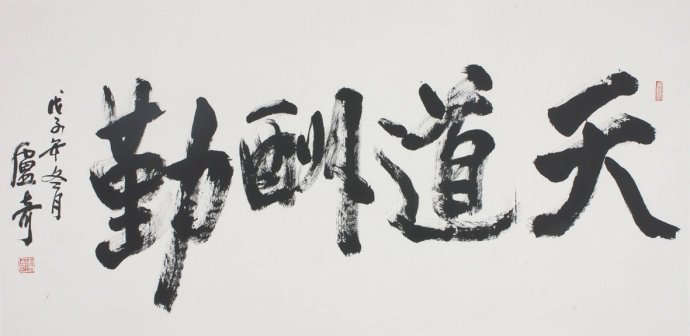 天道酬勤
戊子年冬月
盧奇